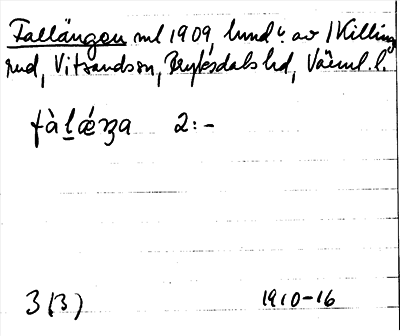 Fallängen ml 1909, lund v. av 1 Killing
rud, Vitsandssn, Älvdals hd, Värml. l.
fàḻǽꞑa 2:-
3 (3) 1910-16